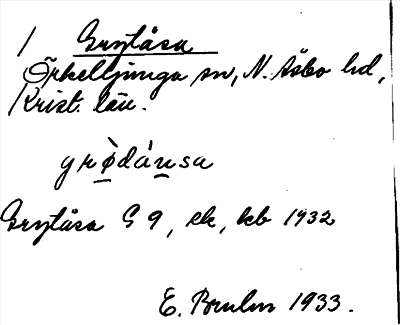 1 Grytåsa
Örkelljunga sn, N. Åsbo hd,
Krist. län.
Grytåsa G 9, ek, kb 1932
E. Bruhn 1933.